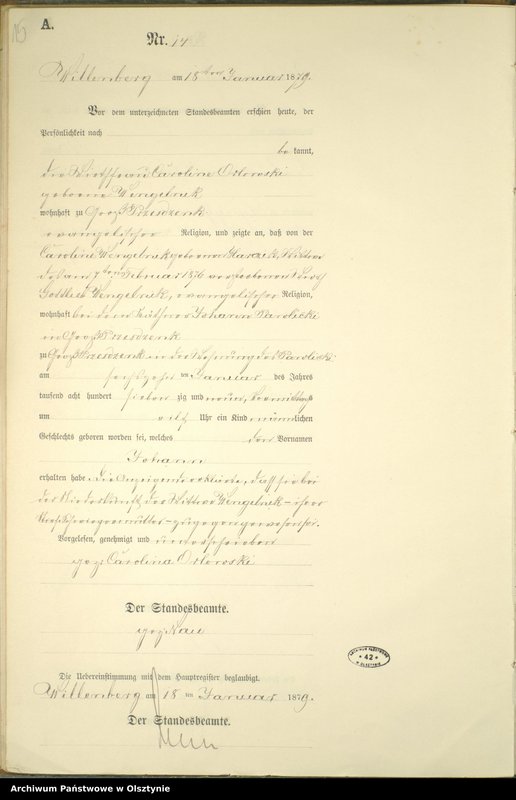 A.
Nr. 14
Willenberg am 18ten Januar 1879.
Vor dem unterzeichneten Standesbeamten erschien heute, der
Persönlichkeit nach
be kannt,
die Caroline Orlowski
geborene Wengelnik
wohnhaft zu Groß Przesdzenk
evangelischer Religion, und zeigte an, daß von der
Caroline Wengelnik geborenen Wittwe
des am 7ten Februar 1876 verstorbenen
Gottlieb Wengelnik, evangelischer Religion,
wohnhaft bei dem Käthner Johann Karolicki
in Groß Przesdzenk
zu Groß Przesdzenk in der Wohnung des Karolicki
am sechszehnten Januar des Jahres
tausend acht hundert sieben zig und neun, Vormittags
um elf Uhr ein Kind männlichen
Geschlechts geboren worden sei, welches den Vornamen
Johann
erhalten habe. Die Anzeigende erklärte, daß sie bei
der Niederkunft der Wittwe Wengelnik – ihrer
– zugegen gewesen sei.
Vorgelesen, genehmigt und unterschrieben
gez: Carolina Orlowski
Der Standesbeamte.
gez:
Die Uebereinstimmung mit dem Hauptregister beglaubigt.
Willenberg am 18 ten Januar 1879.
Der Standesbeamte.
ARCHIWUM PAŃSTWOWE
* 42 *
W OLSZTYNIE
Archiwum Państwowe w Olsztynie